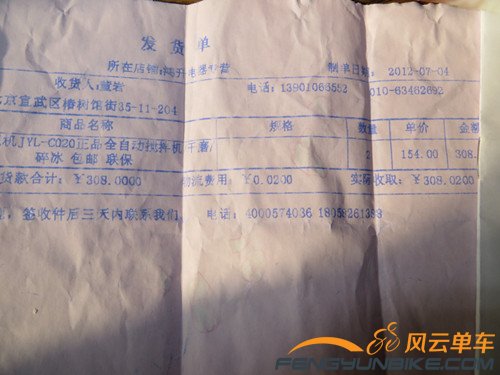 发货单
所在店铺:鸿升电器专营 制单日期: 2012-07-04
收货人:董岩 电话:13901066552 010-63462692
北京宣武区椿树馆街35-11-204
商品名称 规格 数量 单价 金额
机JYL-C020正品全自动搅拌机 干磨 2 154.00 308.
碎冰 包邮 联保
货款合计:￥308.0000 物流费用:￥0.0200 实际收取:￥308.0200
签收件后三天内联系我们, 电话: 4000574036
风云单车
FENGYUNBIKE.COM